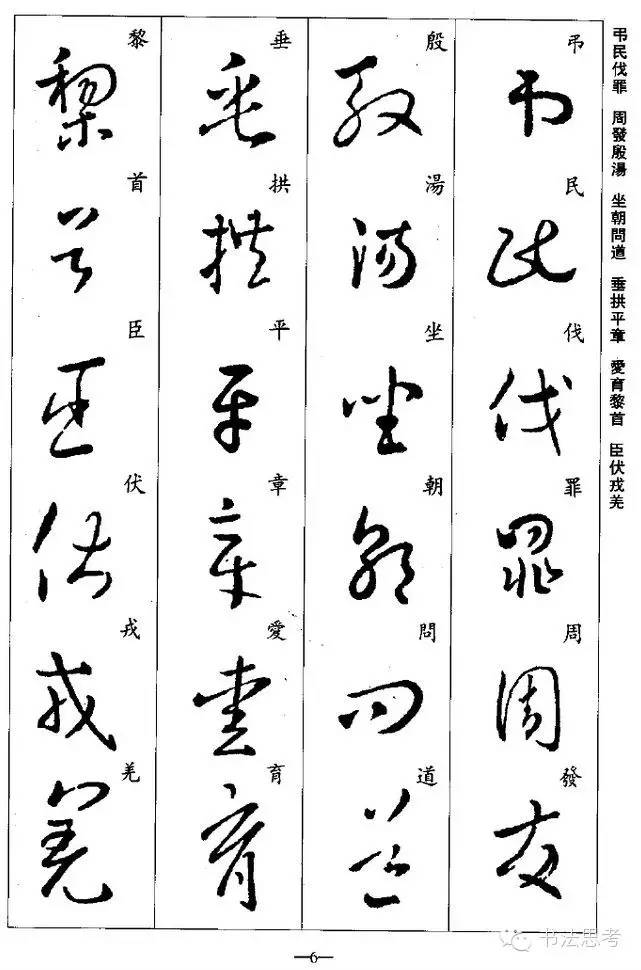 弔民伐罪 周發殷湯 坐朝問道 垂拱平章 愛育黎首 臣伏戎羌
弔民伐罪周發
殷湯坐朝問道
垂拱平章愛育
黎首臣伏戎羌
6
书法思考